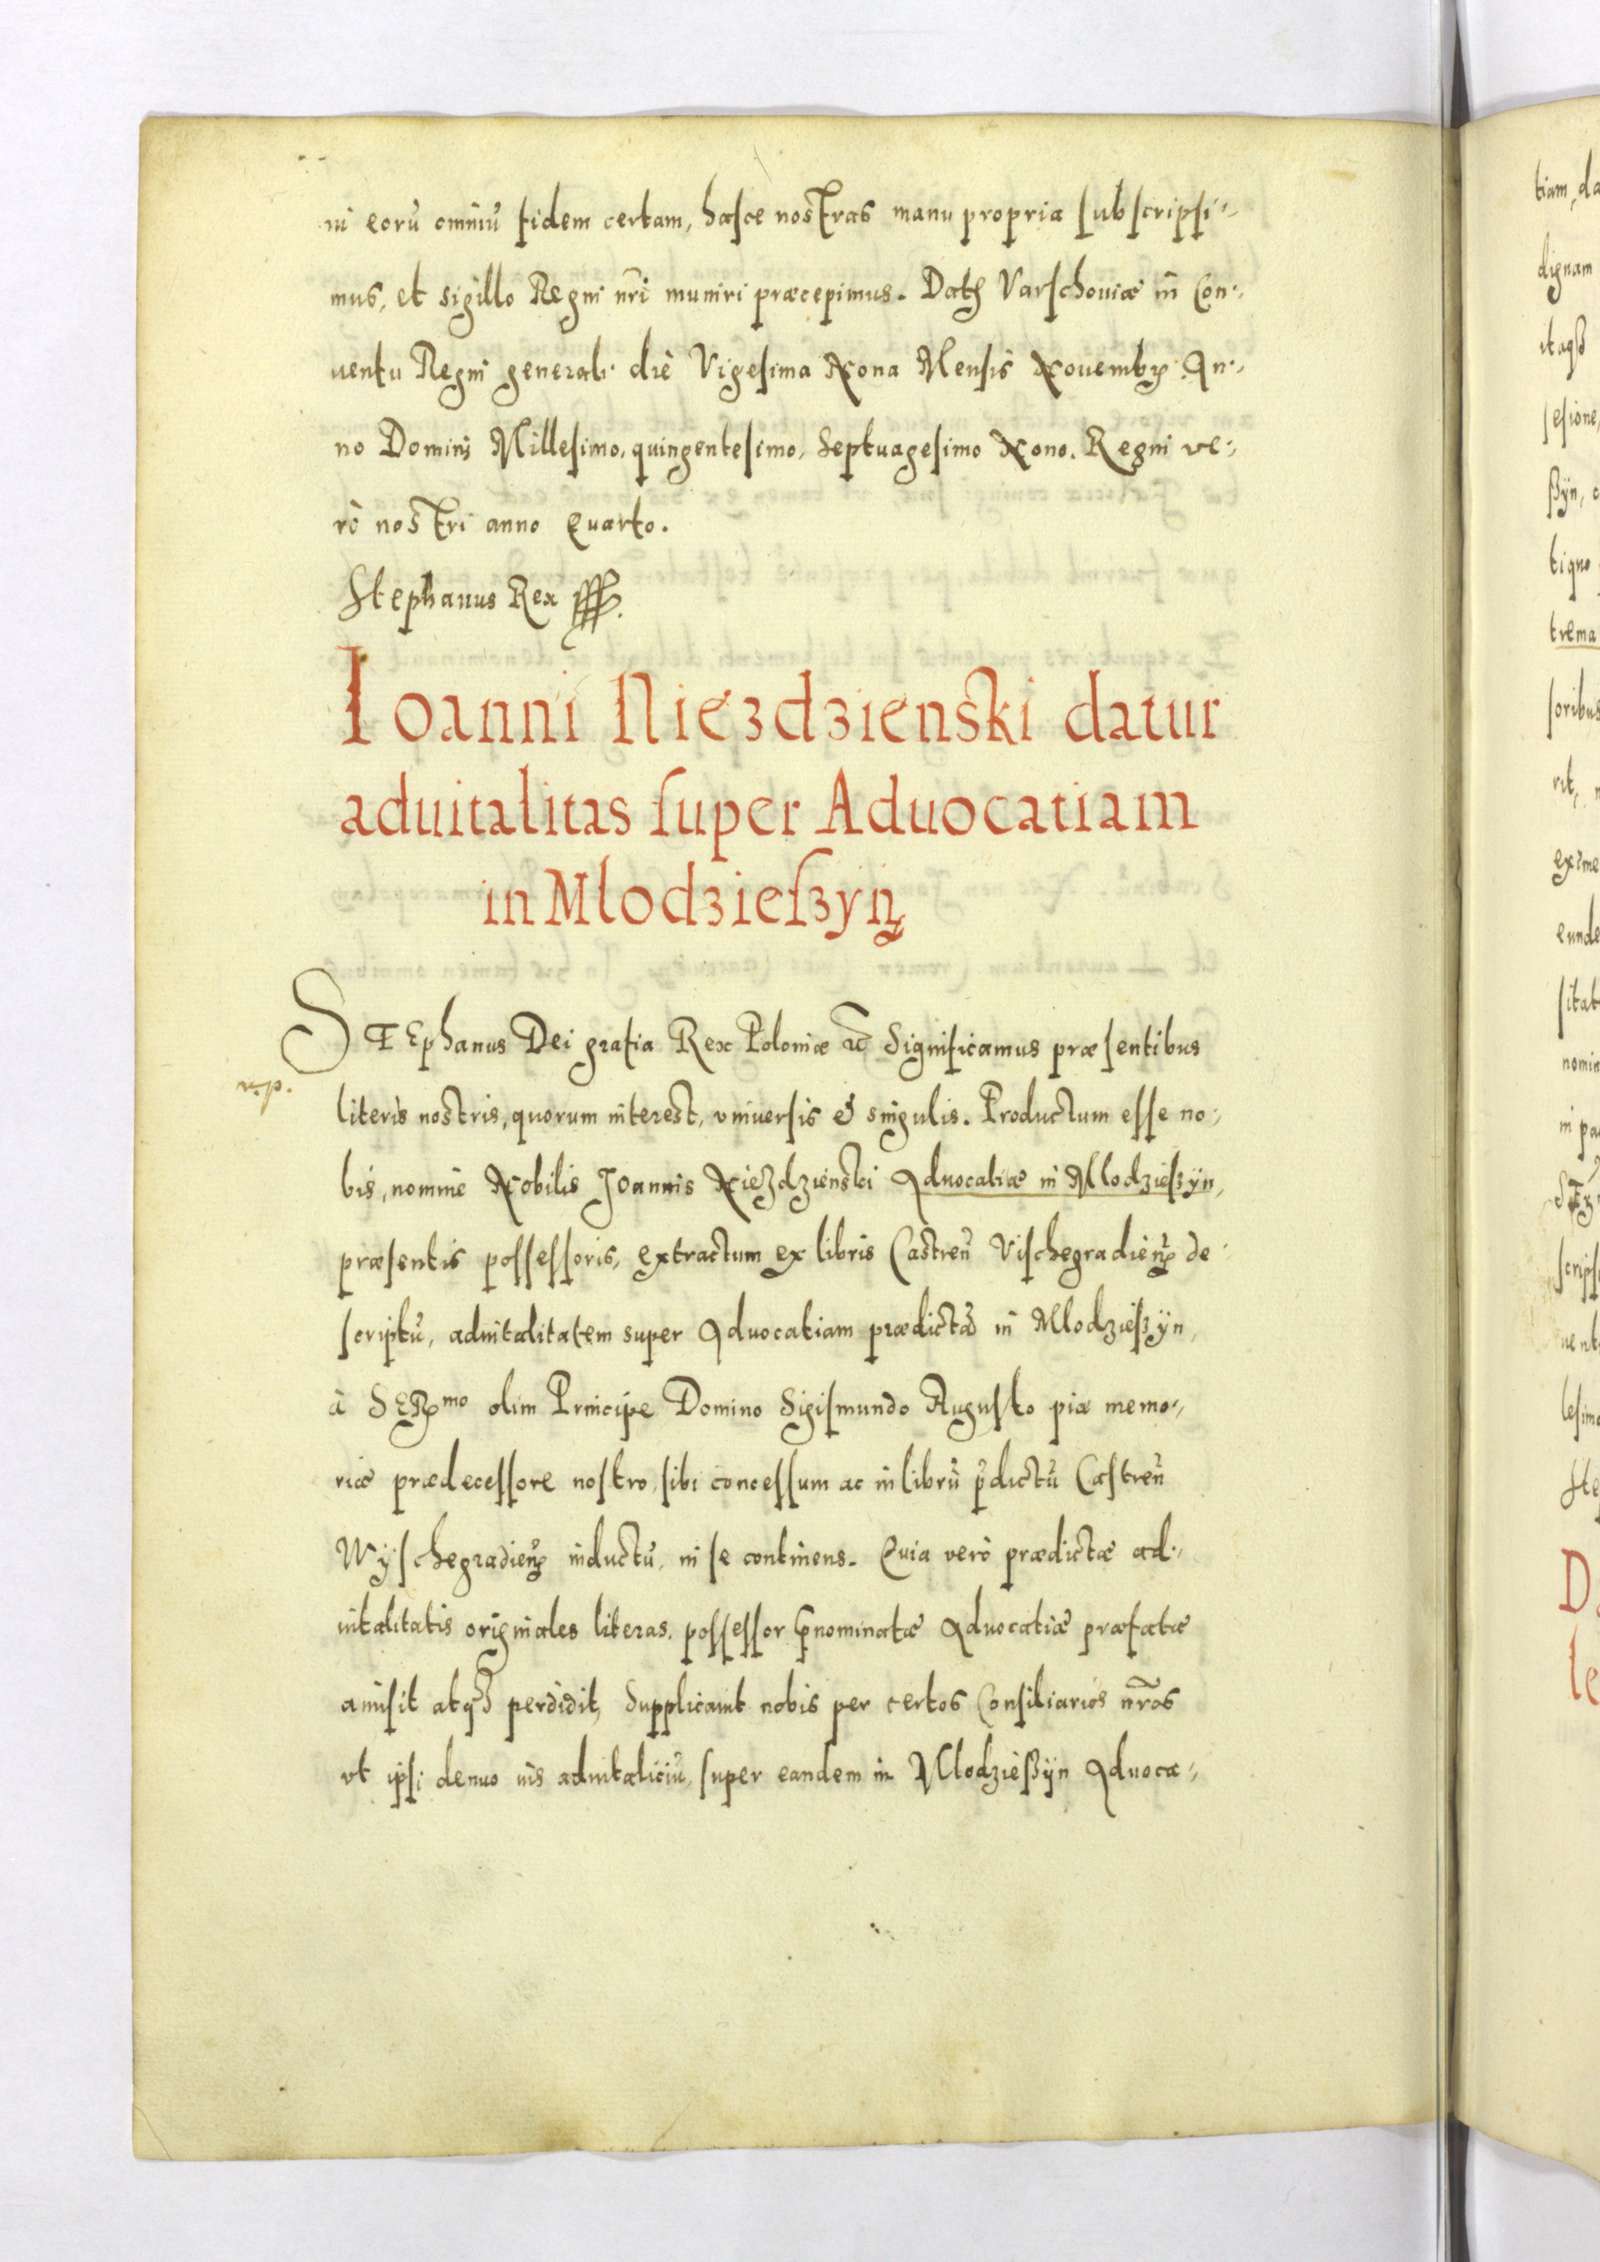 in eorū omniū fidem certam, hasce nostras manu propria subscripsi-
mus, et sigillo Regni nr̄i muniri præcepimus. Datū Varschoviæ in Con-
uentu Regni generali die Vigesima Nona Mensis Nouembr̄ An-
no Domini Millesimo, quingentesimo, Septuagesimo Nono. Regni ve-
rò nostri anno Quarto.
Stephanus Rex
Ioanni Niezdzienski datur
aduitalitas super Aduocatiam
in Mlodzieszyn
STEphanus Dei gratia Rex Poloniæ &c Significamus præsentibus
literis nostris, quorum interest, vniuersis & singulis. Productum esse no-
bis, nomine Nobilis Joannis Niezdzienski Aduocatiæ in Mlodzieszÿn,
præsentis possessoris, extractum ex libris Castreñ Vischegradieñ de-
scriptū, aduitalitatem super Aduocatiam prædictā in Mlodzieszÿn,
à SERmo olim Principe Domino Sigismundo Augusto piæ memo-
riæ prædecessore nostro, sibi concessum ac in librū p̄dictū Castreñ
Wÿschegradieñ inductū, in se continens. Quia verò prædictæ ad-
uitalitatis originales literas, possessor p̄nominatæ Aduocatiæ præfatæ
amisit atq3 perdidit, Supplicauit nobis per certos Consiliarios nr̄os
vt ipsi denuo ius aduitaliciū, super eandem in Mlodzießÿn Aduoca-
tiam, da
dignam
itaq3
sesione,
ßÿn, c
tiquo
trema
soribus
rit, n
exime
eunde
sitat
nomin
in pa
STE
scrips
uent
lesimo
Ste
D
le